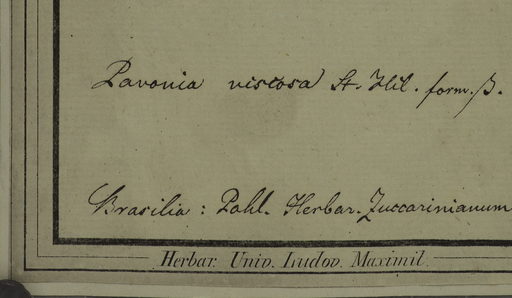 Pavonia viscosa St. Hil. form. β.
Brasilia: Pohl. Herbar. Zuccarinianum
Herbar. Univ. Ludov. Maximil.